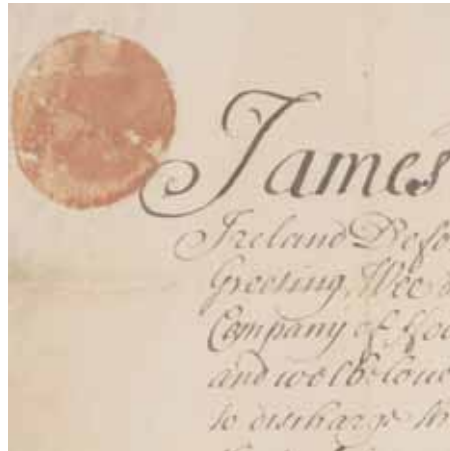 James
Ireland Defo
Greeting, Wee
Company of Foo
and welbelove
to discharge